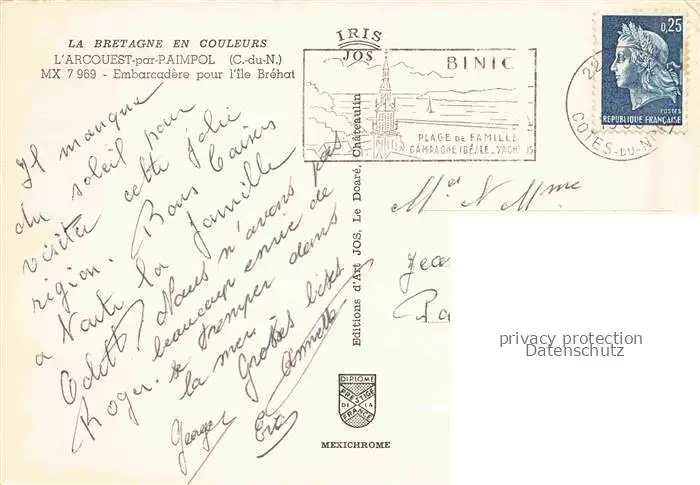 LA BRETAGNE EN COULEURS
L'ARCOUEST-par-PAIMPOL (C.-du-N.)
MX 7 969 - Embarcadère pour l'Île Bréhat
IRIS
JOS
BINIC
PLAGE DE FAMILLE
CAMPAGNE IDÉALE_YACHT
0,25
POSTES
RÉPUBLIQUE FRANÇAISE
22
COTES-DU-N
Il manque
du soleil pour
visiter cette jolie
région. Bons baisers
a toute la famille
Odette
Nous n'avons pas
beaucoup envie de
se tremper dans
la mer
Roger.
Grosses bises
Annette
Georges
Eric
Editions d'Art JOS, Le Doaré, Châteaulin
Mr et Mme
Jea
DIPLOME
PRESTIGE
DE LA
FRANCE
MEXICHROME
privacy protection
Datenschutz